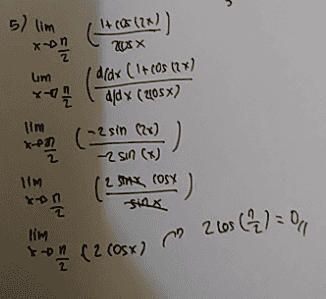 5) lim x→π/2 (1+cos(2x) / 2cos x)
lim x→π/2 (d/dx (1+cos(2x) / d/dx (2cosx)
lim x→π/2 (-2 sin (2x) / -2 sin (x))
lim x→π/2 (2 sinx cosx / sinx)
lim x→π/2 (2 cosx) → 2 cos (π/2) = 0//